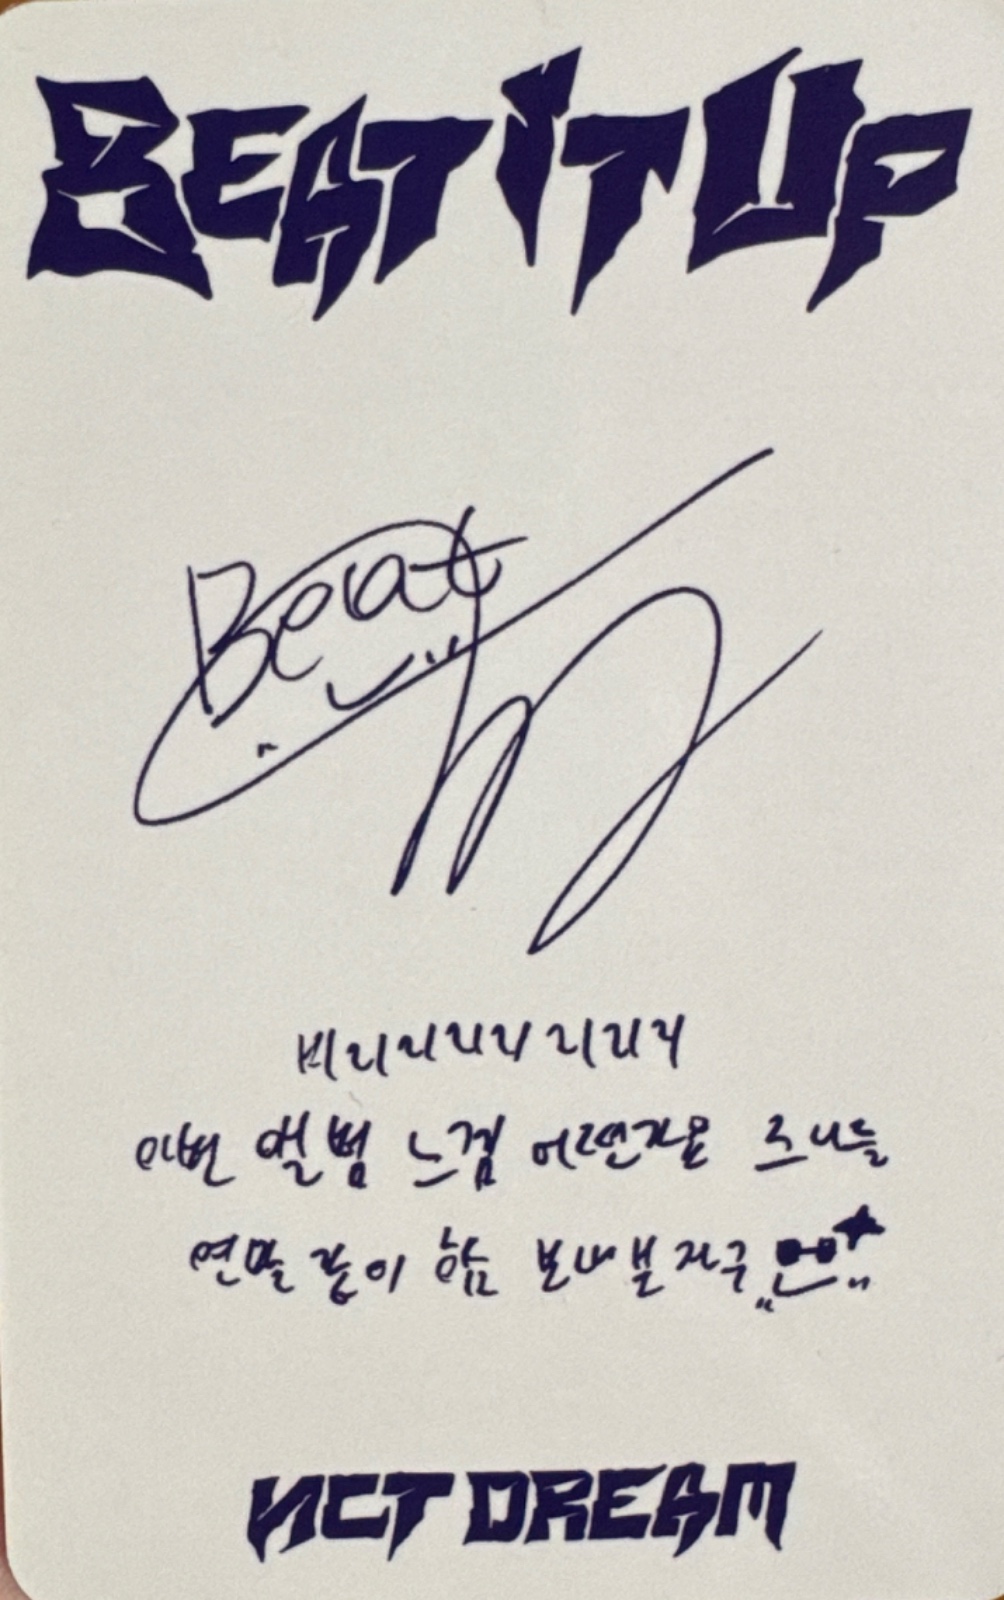 BEAT IT UP
Beat
비리리리리 리리리
이번 앨범 느낌 어떤가요 즈니들
연말 같이 함 보내보자구
NCT DREAM